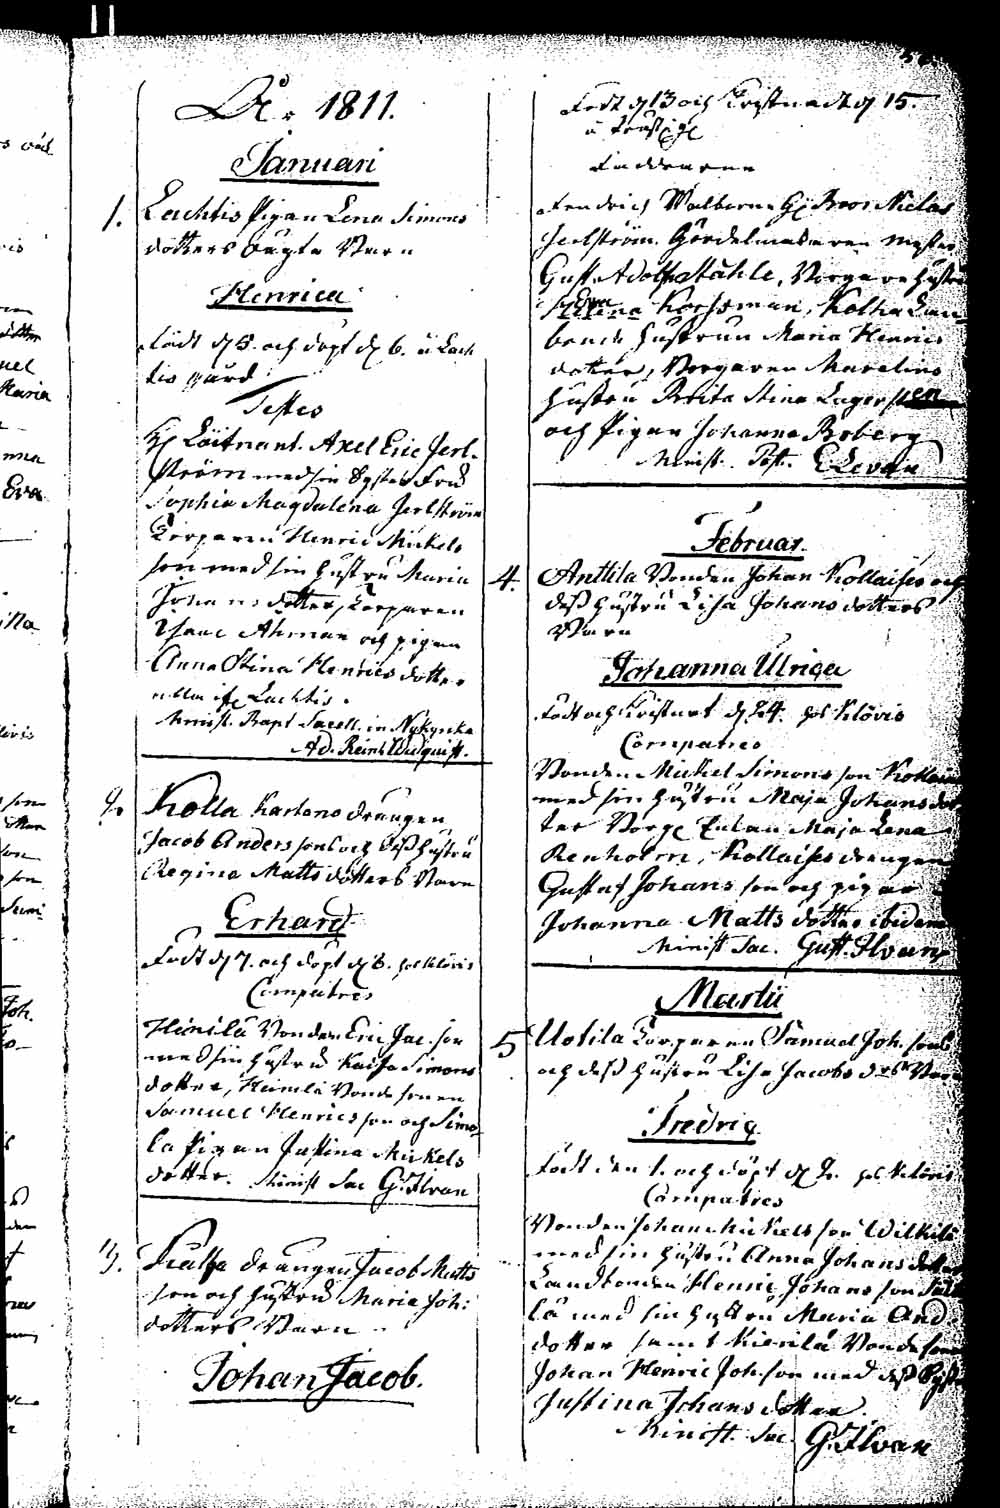 År 1811.
Januari
1. Lachtis Pigan Lena Simons
dotters oägta Barn
Henrica
född d 5. och döpt d 6. i Lach
tis gård
Testes
H Löitnant Axel Eric Jerl-
ström med sin Syster Fru
Sophia Magdalena Jerlström
Torparen Henric Mickels
son med sin hustru Maria
Johans dotter, Torparen
Isaac Åhman och pigan
Anna Stina Henrics dotter
alla i Lachtis.
Minist. Bapt. Sacell. in Nykyrka
Ad. Reinh.
2. Kolla Karhono drängen
Jacob Anders sons och dess hustru
Regina Matts dotters Barn
Erhard
Född d 7. och döpt d 8. hos Klövis
Compatres
Heinilä Bonden Eric Jac. son
med sin hustru Kaisa Simons
dotter, Heinilä Bonde sonen
Samuel Henrics son och Simo
la Pigan Justina Mickels
dotter. Minist Sac G. Ilvan
3. drängen Jacob Matts
son och hustru Maria Joh:
dotters Barn
Johan Jacob.
Född d 13 och Kristnad d 15.
i
Faddrarne
Fendrich Walberne H Bror Niclas
Jerlström. Gördelmakaren Mester
Gust. Adolph Ståhle, Borgare hustru
Helena Eva Korssman, Kolka Lan
bonde hustrun Maria Henrics
dotter, Borgaren Marelins
hustru Brita Stina Lagersten
och Pigan Johanna Boberg
Minist. Past. E Levan
Februar.
4. Anttila Bonden Johan Kollaises och
dess hustru Lisa Johans dotters
Barn
Johanna Ulrica
Född och Kristnat d 24. hos Klövis
Compatres
Bonden Mickel Simons son
med sin hustru Maja Johans dot
ter Borg Enkan Maja Lena
Renholm, Kollaises drängen
Gustaf Johans son och pigan
Johanna Matts dotter ibidem
Minist Sac. Gust. Ilvan
Martii
5 Uotila Torparen Samuel Joh. sons
och dess hustru Lisa Jacobs drs Barn
Fredric
Född den 1. och döpt d 2. hos Klövis
Compatres
Bonden Johan Mickels son Wilkilä
med sin hustru Anna Johans dotter
Landbonden Henric Johans son
lä med sin hustru Maria And
dotter samt Kierilä Bonde sonen
Johan Henric Joh. son med dess Syster
Justina Johans dotter.
Minist. Sac. G. Ilvan